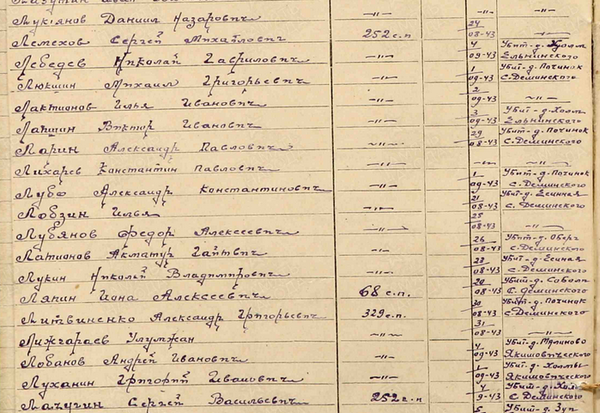 Лукянов Даниил Назарович —"— —"—
Лемехов Сергей Михайлович 252 с.п 24 08-43 —"—
Лебедев Николай Гаврилович —"— 4 09-43 Убит-д. Холм Ельнинского
Люкшин Михаил Григорьевич —"— 1 09-43 Убит-д. Починок С-Деминского
Лактионов Илья Иванович —"— 2 09-43 —"—
Лапшин Виктор Иванович —"— 3 09-43 Убит-д. Холм Ельнинского
Ларин Александр Павлович —"— 29 08-43 Убит-д. Починок С-Деминского
Лихарев Константин Павлович —"— —"— —"—
Лубо Александр Константинович —"— 1 09-43 Убит-д. Починок С-Деминского
Лобзин Илья —"— 21 08-43 Убит-д. С-Деминского
Лубянов Федор Алексеевич —"— 25 08-43 —"—
Латионов Акматур —"— 26 08-43 Убит-д. С-Деминского
Лукин Николай Владимирович —"— 23 08-43 Убит-д. С-Деминского
Лякин Иона Алексеевич 68 с.п. 20 08-43 Убит-д. С-Деминского
Литвиненко Александр Григорьевич 329 с.п. 30 08-43 Убит-д. Починок С-Деминского
Лижгараев Улумжан —"— 31 08-43 —"—
Лобанов Андрей Иванович —"— 4 09-43 Убит-д. Якимовического
Луханин Григорий Иванович —"— 1 09-43 Убит-д. Якимовического
Лачугин Сергей Васильевич 252 с.п 4 09-43 Убит-д. Холм С-Деминского
5 Убит-д.